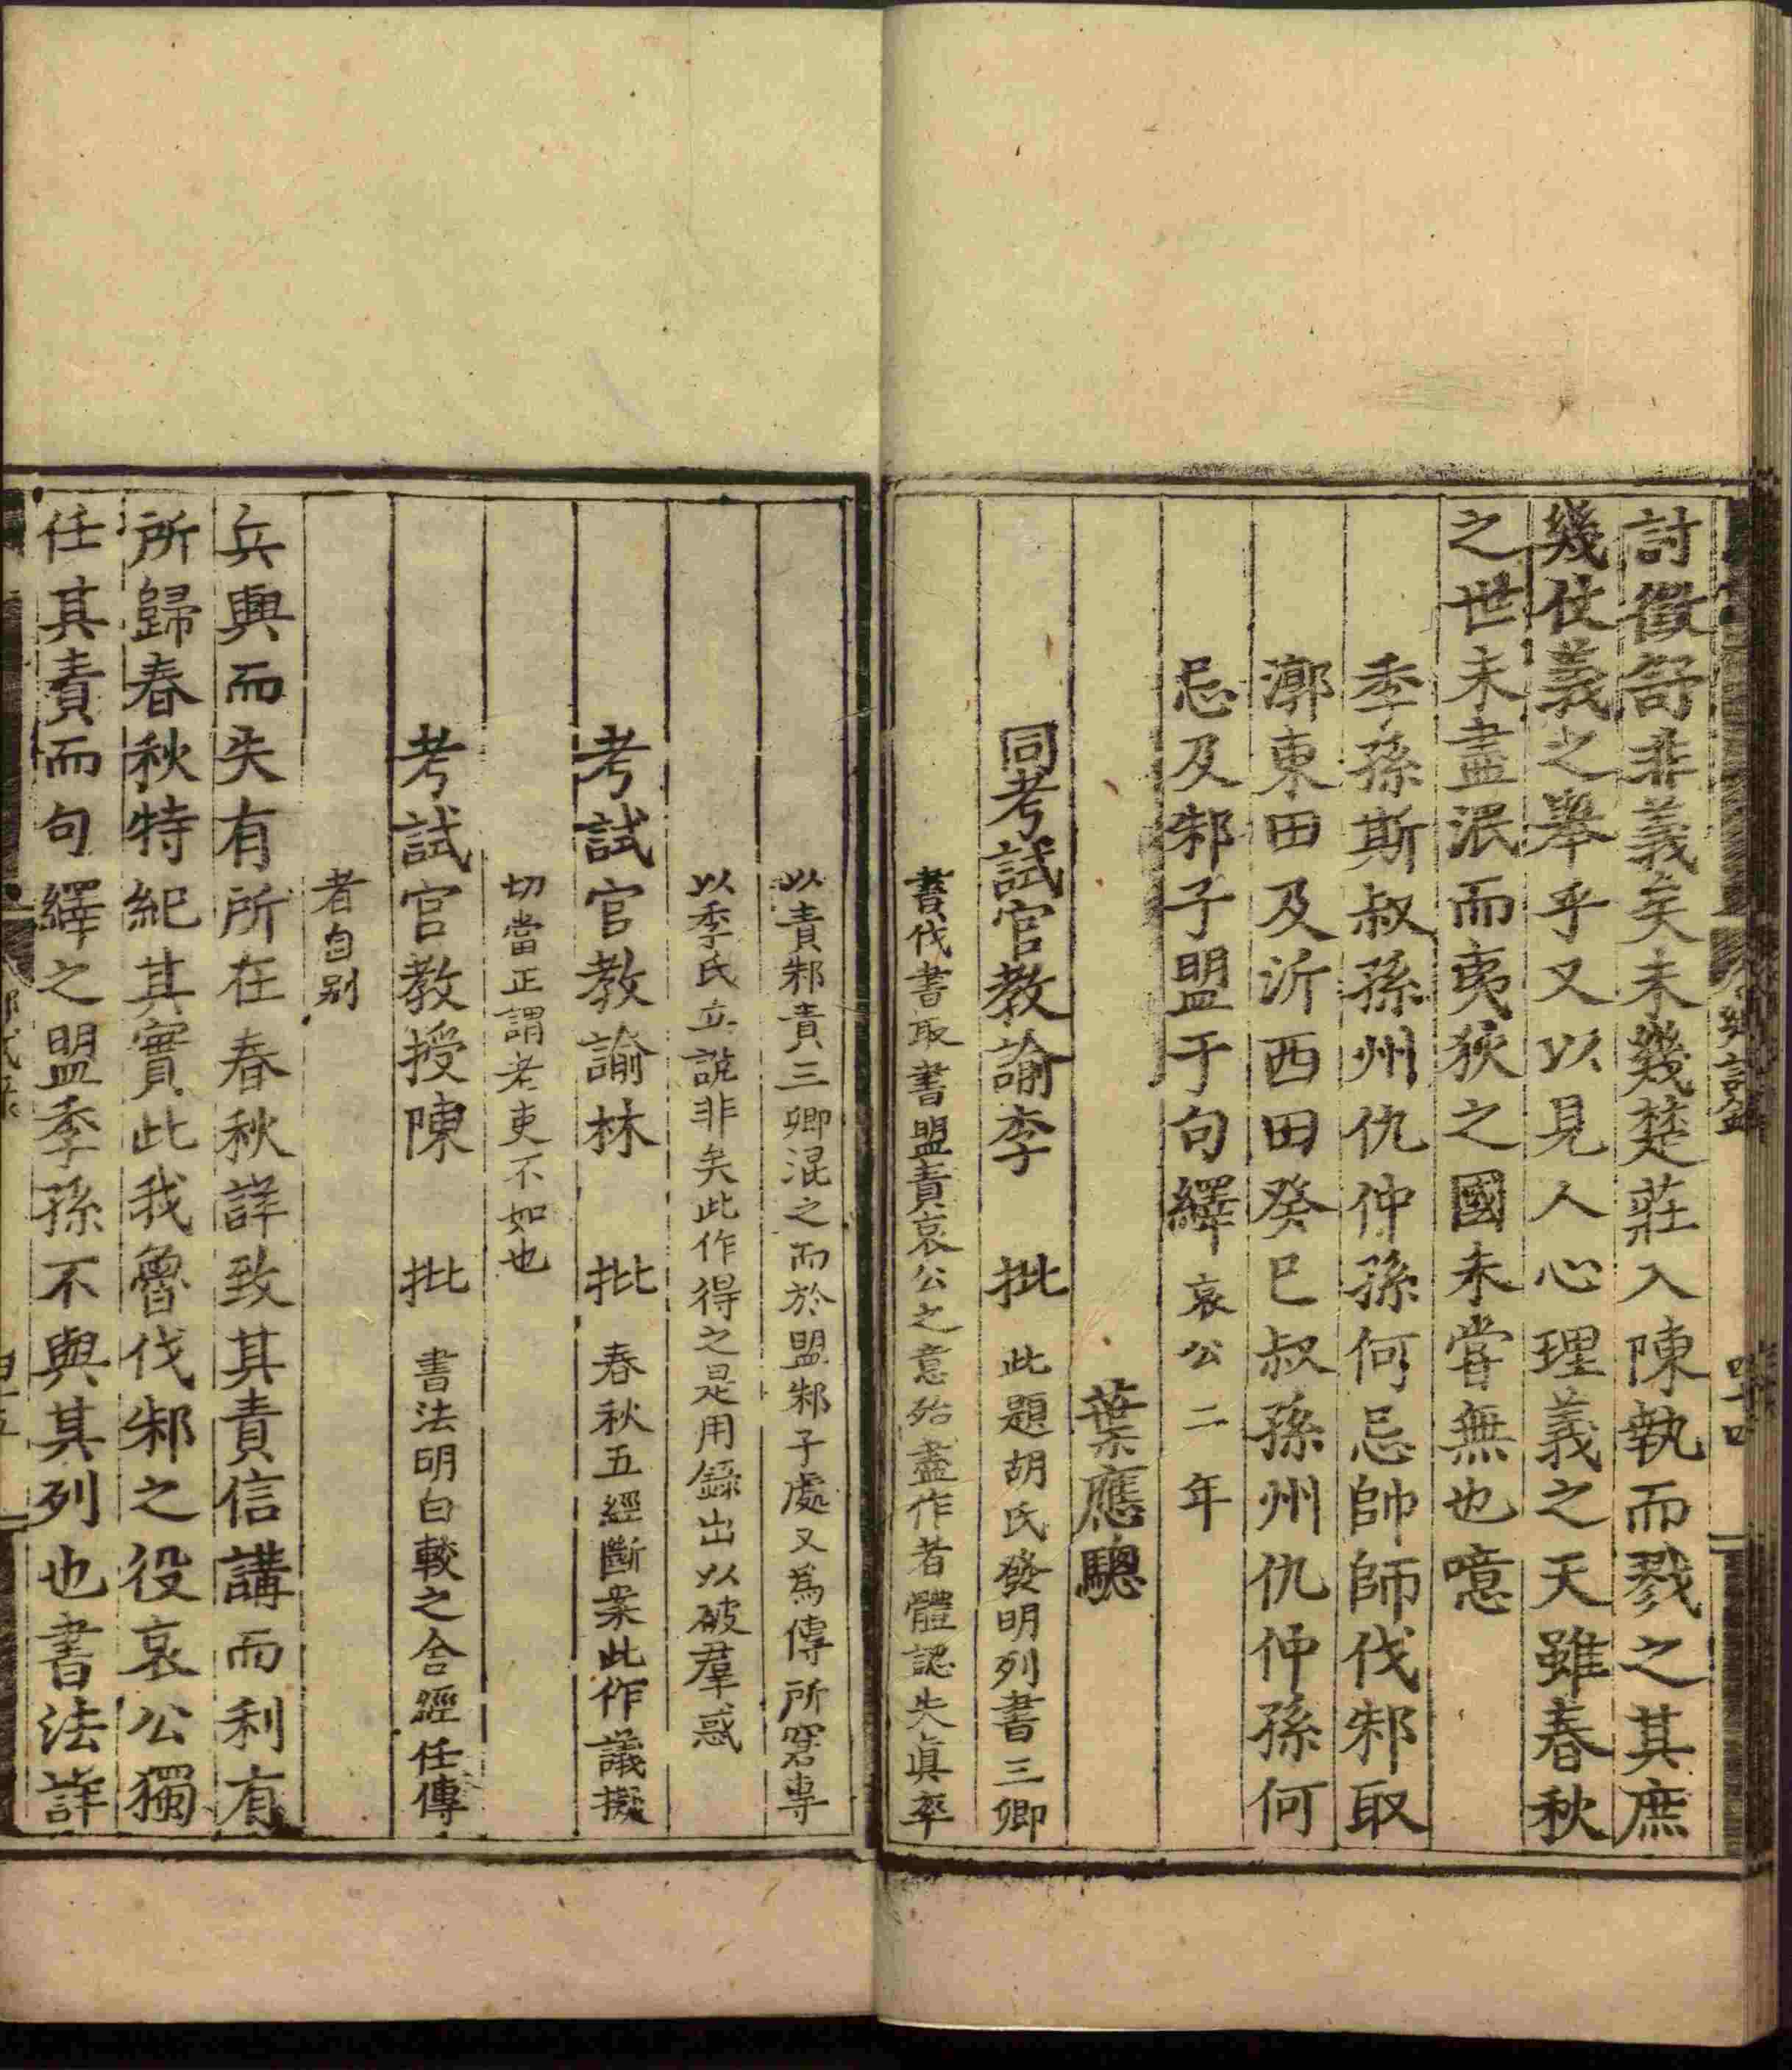 討徵舒非義矣未幾楚莊入陳執而戮之其庶
幾仗義之舉乎又以見人心理義之天雖春秋
之世未盡泯而夷狄之國未嘗無也噫
季孫斯叔孫州仇仲孫何忌帥師伐邾取
漷東田及沂西田癸巳叔孫州仇仲孫何
忌及邾子盟于句繹哀公二年
葉應驄
同考試官教諭李 批 此題胡氏發明列書三卿
書伐書取書盟責哀公之意殆盡作者體認失眞率
以責邾責三卿混之而於盟邾子處又爲傳所窘專
以季氏立說非矣此作得之是用錄出以破羣惑
考試官教諭林 批 春秋五經斷案此作議擬
切當正謂老吏不如也
考試官教授陳 批 書法明白較之舍經任傳
者自别
兵興而失有所在春秋詳致其責信講而利有
所歸春秋特紀其實此我魯伐邾之役哀公獨
任其責而句繹之盟季孫不與其列也書法詳